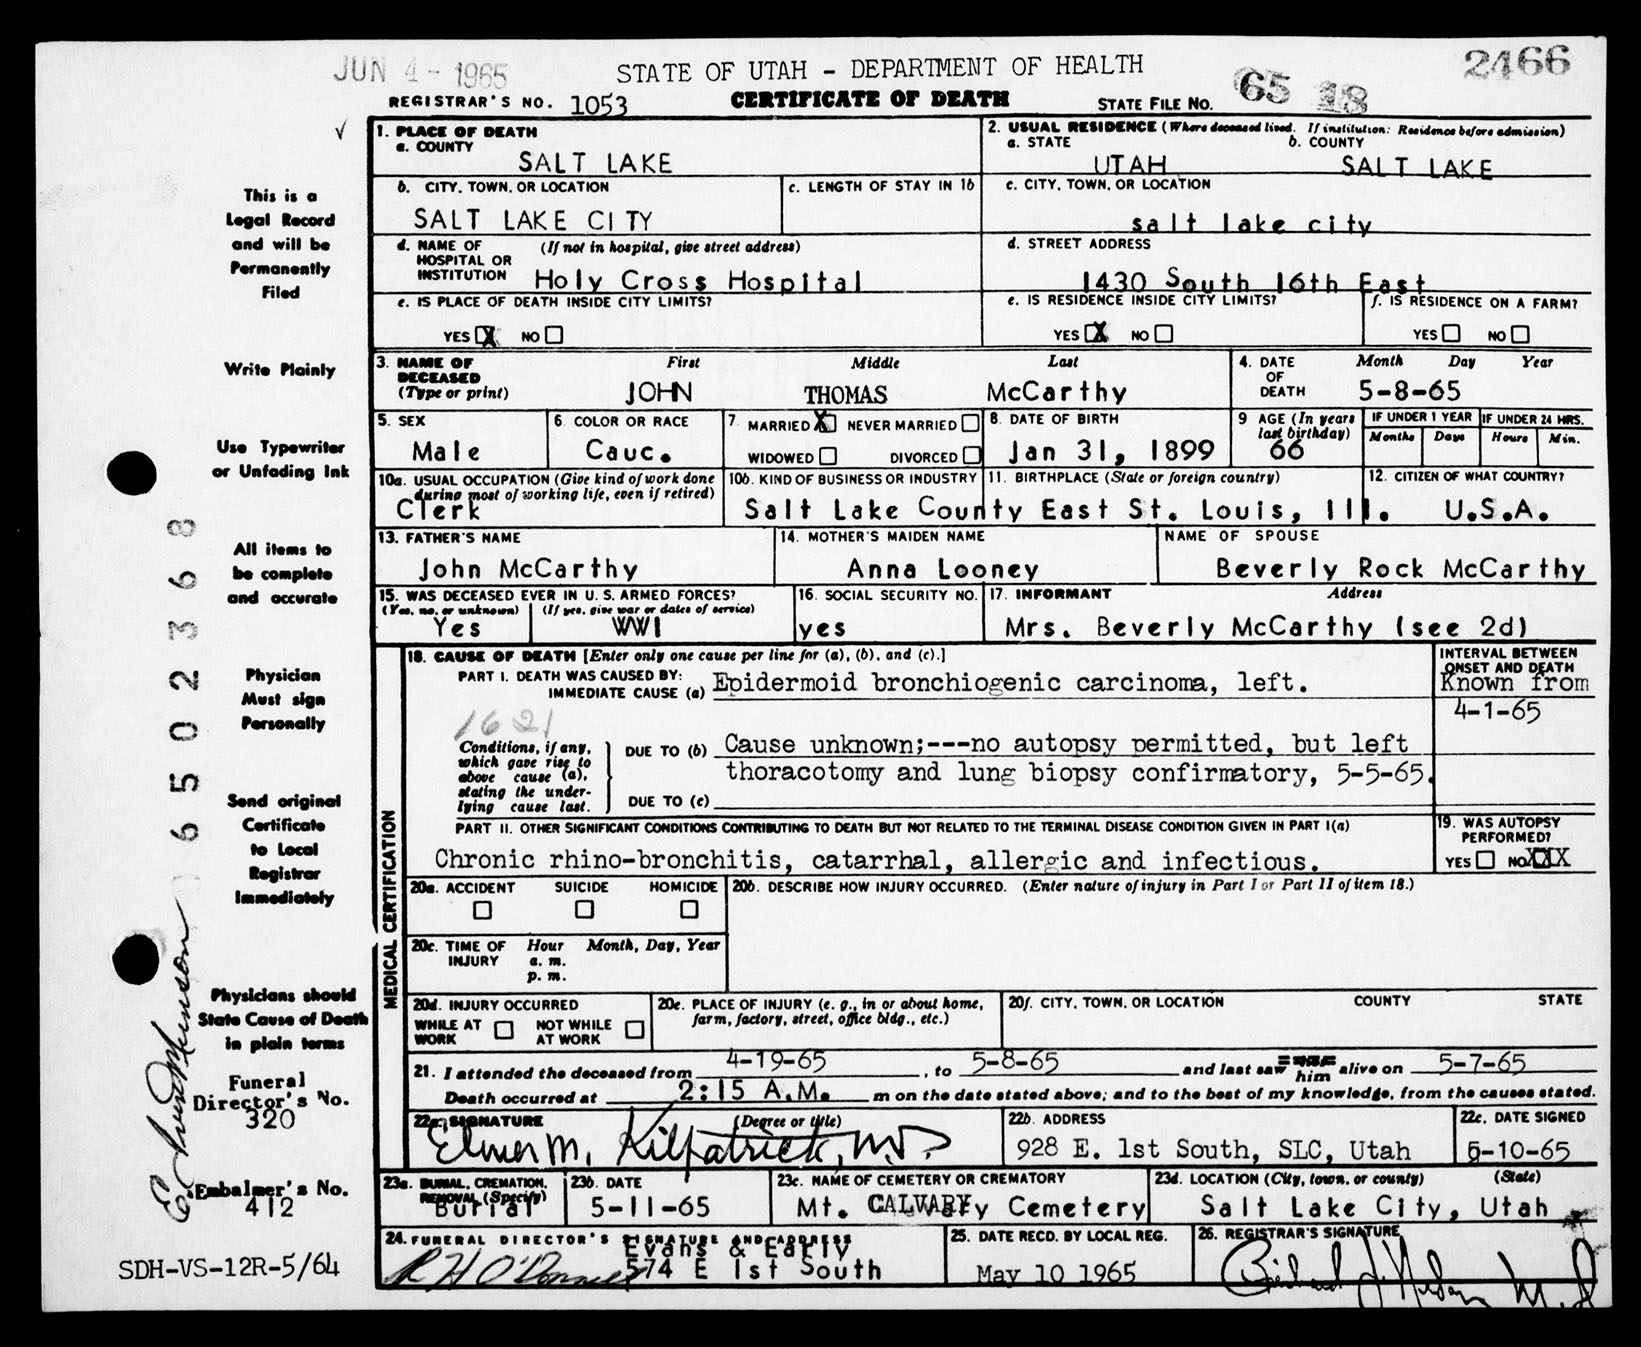 JUN 4 - 1965
STATE OF UTAH - DEPARTMENT OF HEALTH
2466
REGISTRAR'S NO. 1053
CERTIFICATE OF DEATH
STATE FILE NO. 65 18
1. PLACE OF DEATH
a. COUNTY
SALT LAKE
2. USUAL RESIDENCE (Where deceased lived. If institution: Residence before admission)
a. STATE b. COUNTY
UTAH SALT LAKE
b. CITY, TOWN, OR LOCATION
SALT LAKE CITY
c. LENGTH OF STAY IN 1b
c. CITY, TOWN, OR LOCATION
salt lake city
d. NAME OF (If not in hospital, give street address)
HOSPITAL OR
INSTITUTION Holy Cross Hospital
d. STREET ADDRESS
1430 South 16th East
e. IS PLACE OF DEATH INSIDE CITY LIMITS?
YES X NO
e. IS RESIDENCE INSIDE CITY LIMITS?
YES X NO
f. IS RESIDENCE ON A FARM?
YES NO
3. NAME OF First Middle Last
DECEASED
(Type or print) JOHN THOMAS McCarthy
4. DATE Month Day Year
OF
DEATH 5-8-65
5. SEX
Male
6. COLOR OR RACE
Cauc.
7. MARRIED X NEVER MARRIED
WIDOWED DIVORCED
8. DATE OF BIRTH
Jan 31, 1899
9 AGE (In years
last birthday)
66
IF UNDER 1 YEAR
Months Days
IF UNDER 24 HRS.
Hours Min.
10a. USUAL OCCUPATION (Give kind of work done
during most of working life, even if retired)
Clerk
10b. KIND OF BUSINESS OR INDUSTRY
Salt Lake County
11. BIRTHPLACE (State or foreign country)
East St. Louis, Ill.
12. CITIZEN OF WHAT COUNTRY?
U.S.A.
13. FATHER'S NAME
John McCarthy
14. MOTHER'S MAIDEN NAME
Anna Looney
NAME OF SPOUSE
Beverly Rock McCarthy
15. WAS DECEASED EVER IN U.S. ARMED FORCES?
(Yes, no, or unknown) (If yes, give war or dates of service)
Yes WWI
16. SOCIAL SECURITY NO.
yes
17. INFORMANT Address
Mrs. Beverly McCarthy (see 2d)
18. CAUSE OF DEATH [Enter only one cause per line for (a), (b), and (c).]
PART I. DEATH WAS CAUSED BY:
IMMEDIATE CAUSE (a) Epidermoid bronchiogenic carcinoma, left.
INTERVAL BETWEEN
ONSET AND DEATH
Known from
4-1-65
1621
Conditions, if any,
which gave rise to
above cause (a),
stating the under-
lying cause last.
DUE TO (b) Cause unknown;---no autopsy permitted, but left
thoracotomy and lung biopsy confirmatory, 5-5-65.
DUE TO (c)
PART II. OTHER SIGNIFICANT CONDITIONS CONTRIBUTING TO DEATH BUT NOT RELATED TO THE TERMINAL DISEASE CONDITION GIVEN IN PART I(a)
Chronic rhino-bronchitis, catarrhal, allergic and infectious.
19. WAS AUTOPSY
PERFORMED?
YES NO XXX
MEDICAL CERTIFICATION
20a. ACCIDENT SUICIDE HOMICIDE
20b. DESCRIBE HOW INJURY OCCURRED. (Enter nature of injury in Part I or Part II of item 18.)
20c. TIME OF Hour Month, Day, Year
INJURY a. m.
p. m.
20d. INJURY OCCURRED
WHILE AT WORK NOT WHILE AT WORK
20e. PLACE OF INJURY (e. g., in or about home,
farm, factory, street, office bldg., etc.)
20f. CITY, TOWN, OR LOCATION COUNTY STATE
21. I attended the deceased from 4-19-65, to 5-8-65 and last saw him alive on 5-7-65
Death occurred at 2:15 A.M. m on the date stated above; and to the best of my knowledge, from the causes stated.
22a. SIGNATURE (Degree or title)
Elmer M. Kilpatrick, M.D.
22b. ADDRESS
928 E. 1st South, SLC, Utah
22c. DATE SIGNED
5-10-65
23a. BURIAL, CREMATION,
REMOVAL (Specify)
Burial
23b. DATE
5-11-65
23c. NAME OF CEMETERY OR CREMATORY
Mt. CALVARY Cemetery
23d. LOCATION (City, town, or county) (State)
Salt Lake City, Utah
24. FUNERAL DIRECTOR'S SIGNATURE AND ADDRESS
Evans & Early
R H O'Donnell 574 E 1st South
25. DATE RECD. BY LOCAL REG.
May 10 1965
26. REGISTRAR'S SIGNATURE
This is a
Legal Record
and will be
Permanently
Filed
Write Plainly
Use Typewriter
or Unfading Ink
All items to
be complete
and accurate
Physician
Must sign
Personally
Send original
Certificate
to Local
Registrar
Immediately
Physicians should
State Cause of Death
in plain terms
Funeral
Director's No.
320
Embalmer's No.
412
SDH-VS-12R-5/64
6502368